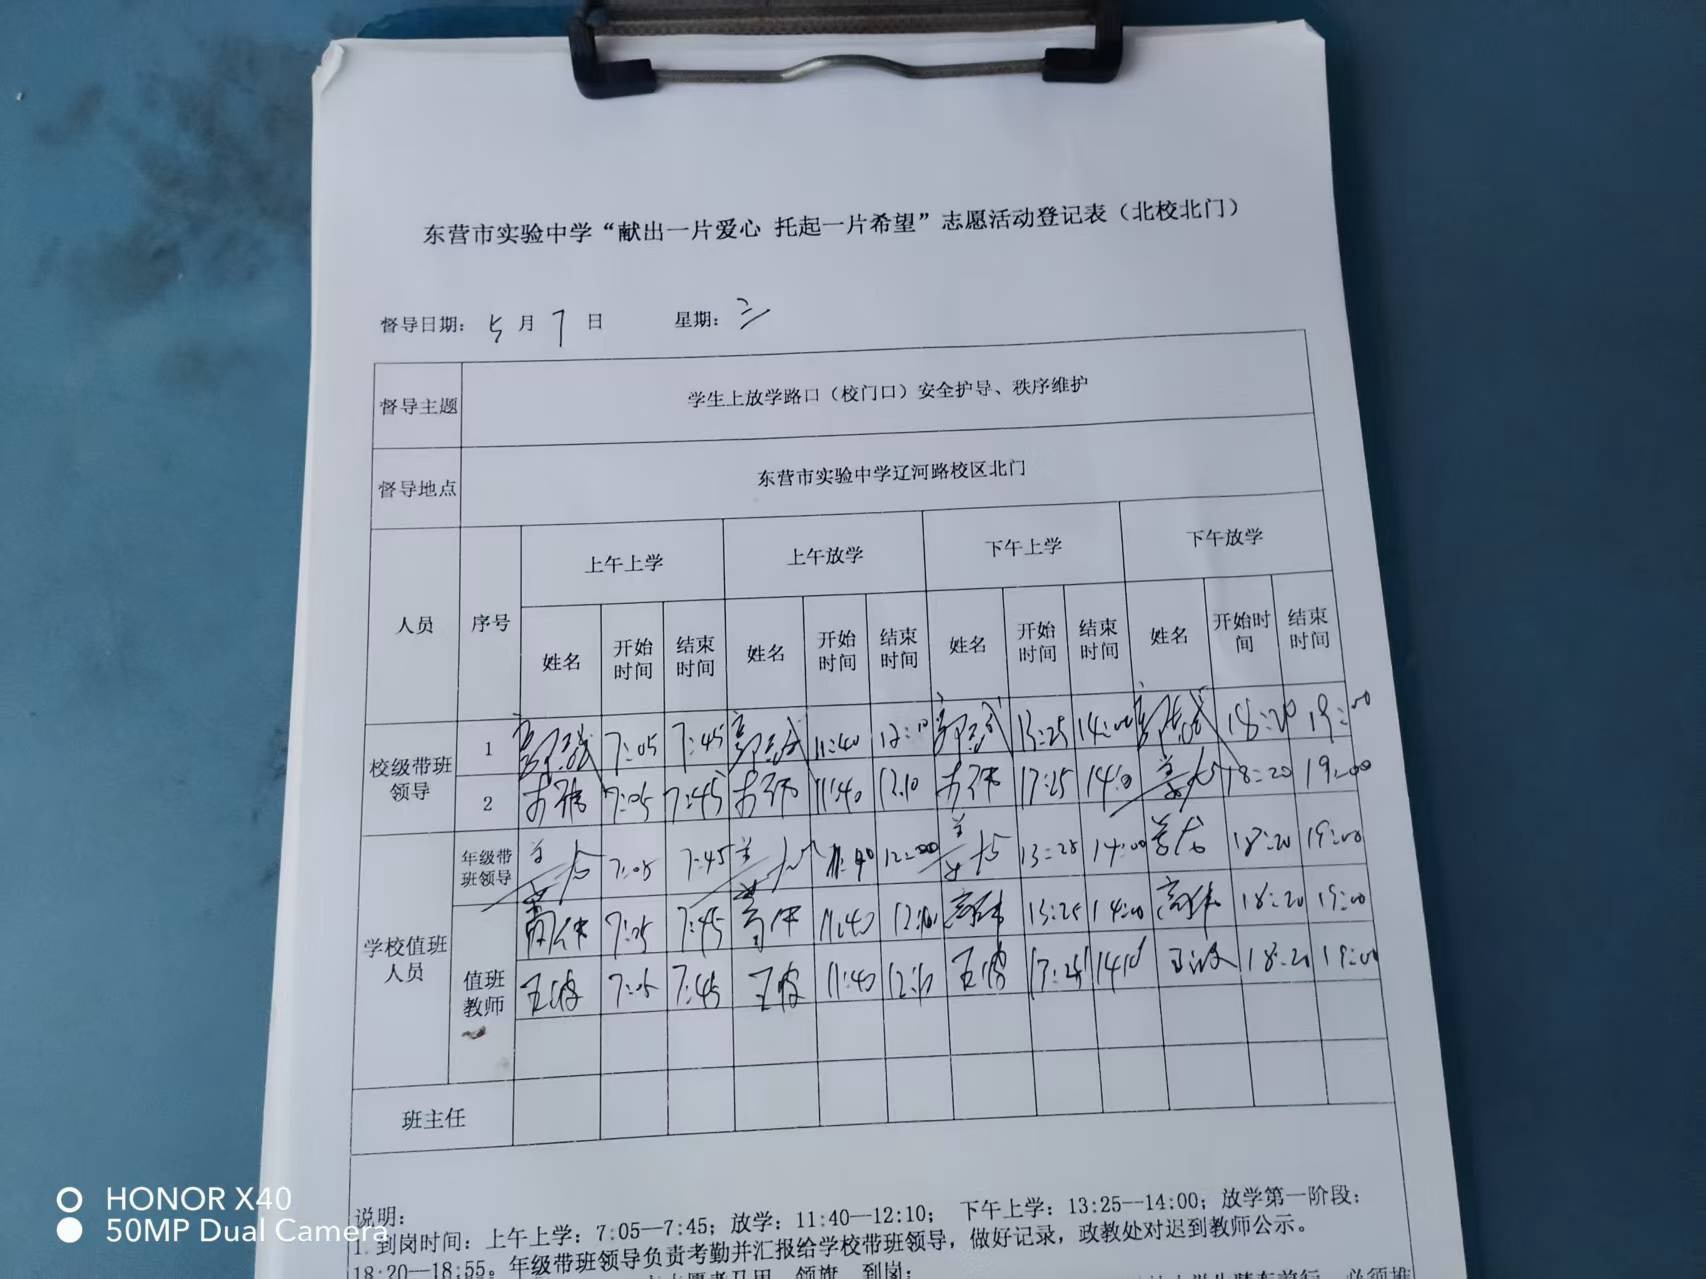 东营市实验中学“献出一片爱心 托起一片希望”志愿活动登记表（北校北门）
督导日期： 5 月 7 日 星期：三
督导主题 学生上放学路口（校门口）安全护导、秩序维护
督导地点 东营市实验中学辽河路校区北门
人员 序号 上午上学 上午放学 下午上学 下午放学
姓名 开始时间 结束时间 姓名 开始时间 结束时间 姓名 开始时间 结束时间 姓名 开始时间 结束时间
校级带班领导
1 7:05 7:45 11:40 12:10 13:25 14:00 18:20 19:00
2 7:05 7:45 11:40 12:10 17:25 18:20 19:00
学校值班人员
年级带班领导 7:05 7:45 11:40 12:00 13:25 14:00 18:20 19:00
值班教师
7:05 7:45 11:40 12:10 13:25 14:00 18:20 19:00
王波 7:05 7:45 王波 11:40 12:10 王波 17:25 王波 18:20 19:00
班主任
说明：
1.到岗时间：上午上学：7:05—7:45；放学：11:40—12:10； 下午上学：13:25--14:00；放学第一阶段：
18:20--18:55。年级带班领导负责考勤并汇报给学校带班领导，做好记录，政教处对迟到教师公示。
领旗 到岗；
HONOR X40
50MP Dual Camera